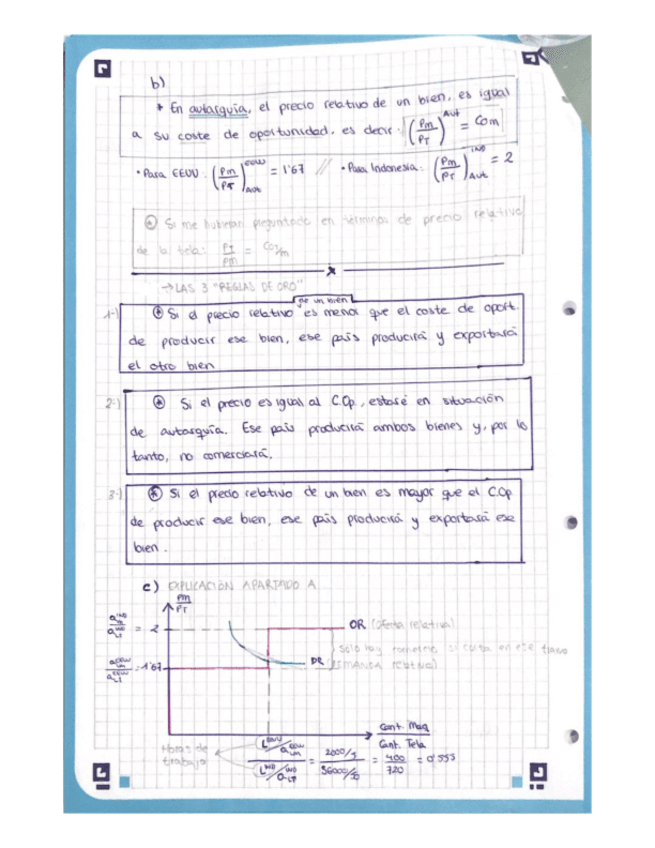 b)
* En autarquía, el precio relativo de un bien, es igual
a su coste de oportunidad, es decir: (Pm/PT)^Aut = COm
• Para EEUU: (Pm/PT)^EEUU Aut = 1'67 // • Para Indonesia: (Pm/PT)^IND Aut = 2
* Si me hubieran preguntado en términos de precio relativo
de la tela: PT/Pm = COT/m
→ LAS 3 "REGLAS DE ORO"
de un bien
1-) * Si el precio relativo es menor que el coste de oport.
de producir ese bien, ese país producirá y exportará
el otro bien
2-) * Si el precio es igual al C.Op, estaré en situación
de autarquía. Ese país producirá ambos bienes y, por lo
tanto, no comerciará.
3-) * Si el precio relativo de un bien es mayor que el C.Op
de producir ese bien, ese país producirá y exportará ese
bien.
c) EXPLICACIÓN APARTADO A
Pm/PT
= 2
OR (oferta relativa)
solo hay comercio si corta en ese tramo
= 1'67
DR
DEMANDA relativa)
Cant. Maq
Cant. Tela
Horas de
trabajo
= 400/720 = 0'555